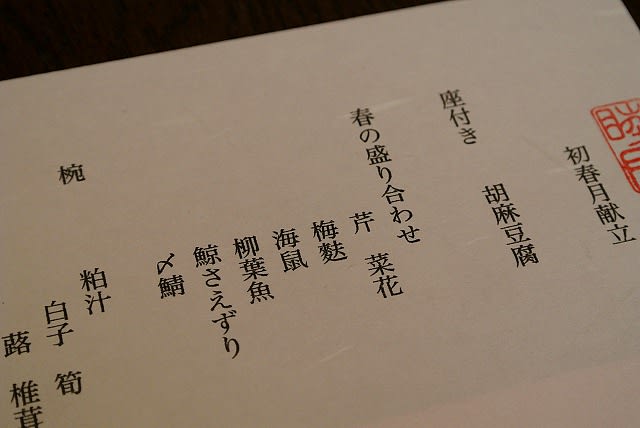 初春月献立
座付き
胡麻豆腐
春の盛り合わせ
芹 菜花
梅麩
海鼠
柳葉魚
鯨さえずり
〆鯖
椀
粕汁
白子 筍
蕗 椎茸